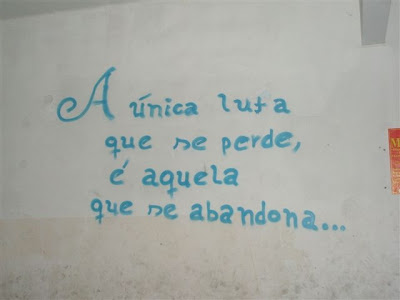 A única luta
que se perde,
é aquela
que se abandona...
M